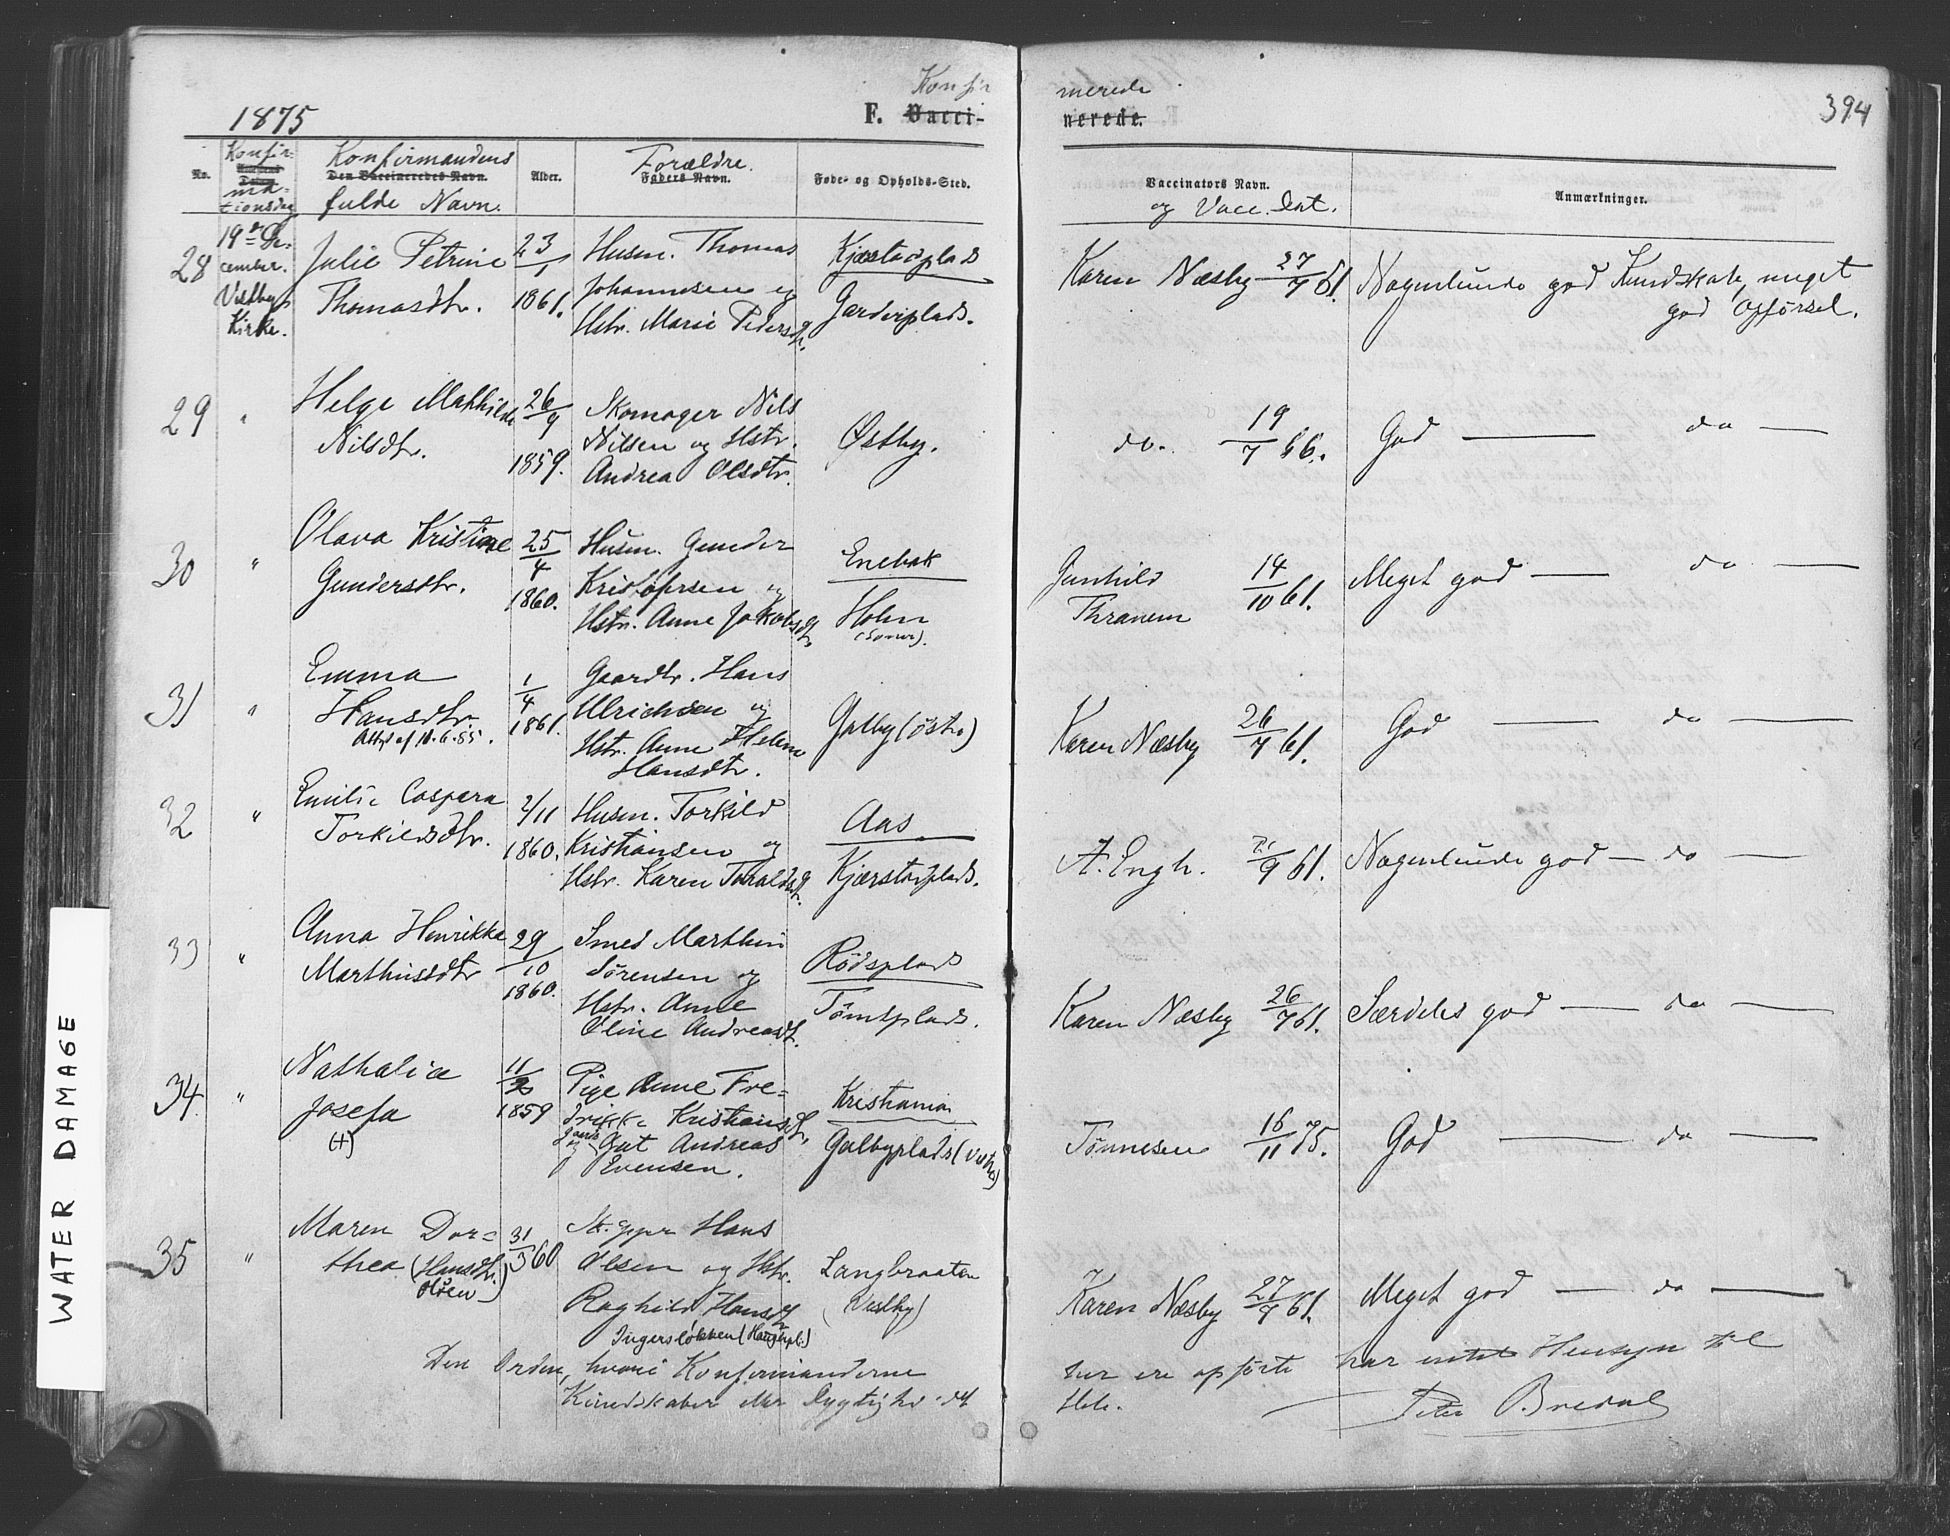 1875
Konfir
merede
394
F. Vacci-
nerede.
No.
Konfir-
ma-
tionsdag
Konfirmandens
Den Vaccineredes Navn.
fulde Navn.
Alder.
Forældre.
Faders Navn.
Føde- og Opholds-Sted.
Vaccinators Navn.
og Vacc. Dat.
Anmærkninger.
28
19de De-
cember.
Vestby
Kirke.
Julie Petrine
Thomasdtr.
23/1
1861.
Husm. Thomas
Johannesen og
Hstr. Marie Pedersdtr.
Kjærstadplads
Garderplads.
Karen Næsby 27/7 61.
Nogenlunde god Kundskab, meget
god Opførsel.
29 "
Helge Mathilde
Nilsdtr.
26/9
1859.
Skomager Nils
Nilsen og Hstr.
Andrea Olsdtr.
Østby.
do. 19/7 66.
God — do —
30 "
Olava Kristine
Gundersdtr.
25/4
1860.
Husm. Gunder
Kristofersen og
Hstr. Anne Jakobsdtr.
Enebak
Holm
(Soner).
Gunhild
Thranem 14/10 61.
Meget god — do —
31 "
Emma
Hansdtr.
Attst af 11.6.85.
1/4
1861.
Gaardbr. Hans
Ulrichsen og
Hstr. Anne Helene
Hansdtr.
Galby (østre)
Karen Næsby 26/7 61.
God — do —
32 "
Emilie Caspara
Torkildsdtr.
2/11
1860.
Husm. Torkild
Kristiansen og
Hstr. Karen Toraldsdtr.
Aas
Kjærstadplads.
A. Engh. 21/9 61.
Nogenlunde god — do —
33 "
Anna Henrikke
Marthinsdtr
29/10
1860.
Smed Marthin
Sørensen og
Hstr. Anne
Oline Andreasdt.
Rødsplads
Tomtplads.
Karen Næsby 26/7 61.
Særdeles god — do —
34. "
Nathalia
Josefa
(+)
11/2
1859
Pige Anne Fre-
drikke Kristiansdtr.
og Gut Andreas
Evensen.
Kristiania
Galbyplads (vestre)
Tønnesen 16/11 75.
God — do —
35 "
Maren Dor-
thea (Hansdtr.)
Olsen
31/3 60
Hans
Olsen og Hstr.
Raghild Hansdtr
Ingersløkken
Langbraaten
(Vestby)
Karen Næsby 27/9 61.
Meget god — do —
Den Orden, hvori Konfirmanderne
her ere opførte har intet Hensyn til
Kundskaber eller Dygtighed
Peter Bredal
WATER DAMAGE